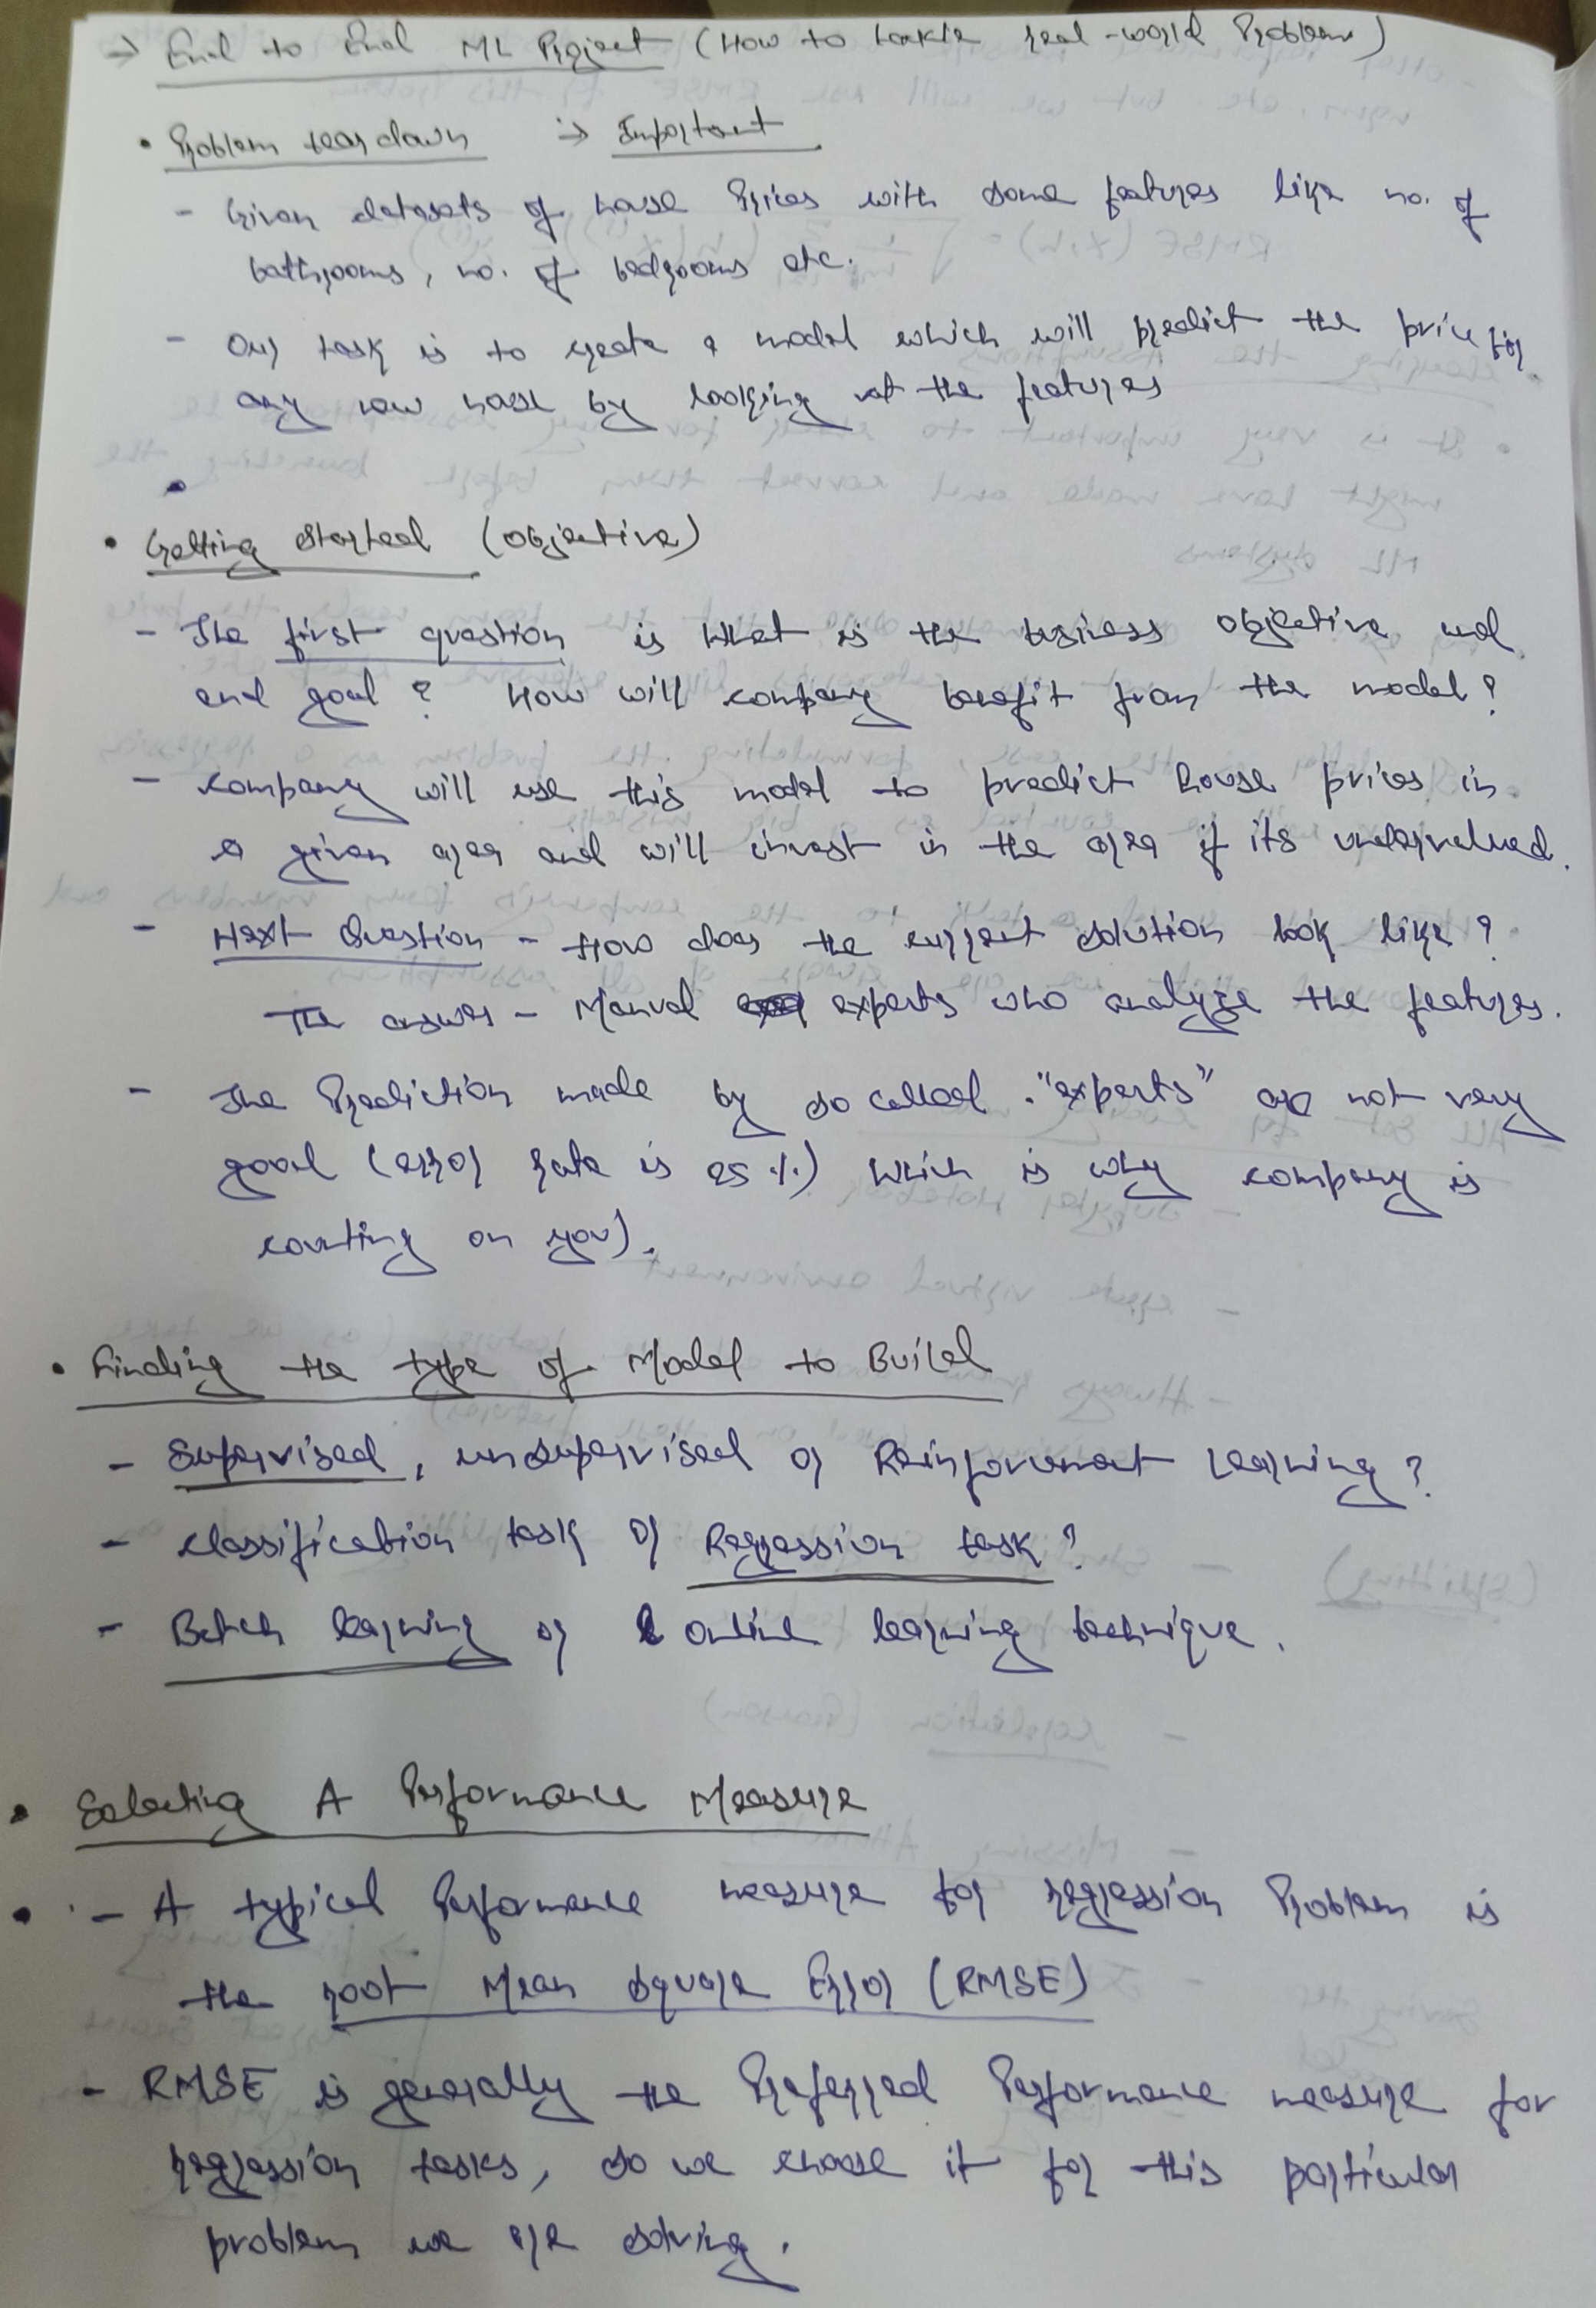 → End to End ML Project (How to tackle real-world Problems)
• Problem teardown → Important
- Given datasets of house Prices with some features like no. of
bathrooms, no. of bedrooms etc.
- Our task is to create a model which will predict the price for
any new house by looking at the features
• Getting Started (Objective)
- The first question is What is the business objective and
end goal? How will company benefit from the model?
- Company will use this model to predict house prices in
a given area and will invest in the area if its undervalued.
- Next Question - How does the current solution look like?
The answer - Manual experts who analyze the features.
- The Prediction made by so called "experts" are not very
good (error rate is 25%) Which is why company is
counting on you).
• Finding the type of Model to Build
- Supervised, unsupervised or Reinforcement Learning?
- Classification task or Regression task?
- Batch learning or online learning technique.
• Selecting A Performance Measure
• - A typical Performance measure for regression Problem is
the root Mean Square Error (RMSE)
- RMSE is generally the Preferred Performance measure for
regression tasks, so we choose it for this particular
problem we are solving.